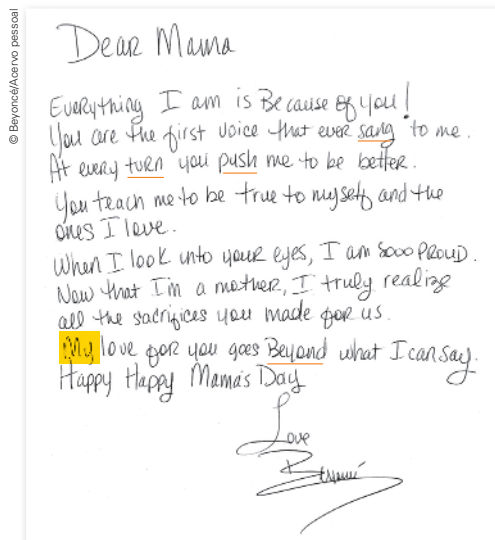 © Beyoncé/Acervo pessoal
Dear Mama
Everything I am is Because of you!
You are the first voice that ever sang to me.
At every turn you push me to be better.
You teach me to be true to myself and the
ones I love.
When I look into your eyes, I am sooo PROUD.
Now that I'm a mother, I truly realize
all the sacrifices you made for us.
My love for you goes Beyond what I can say.
Happy Happy Mama's Day
Love
Beyoncé